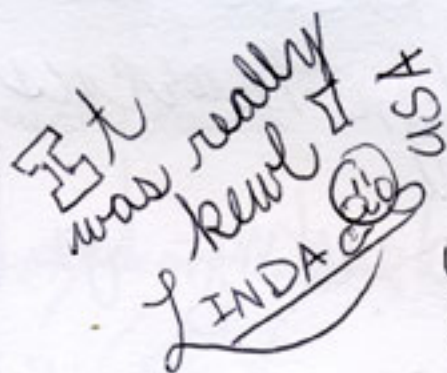 It
was really
kewl!
LINDA
USA